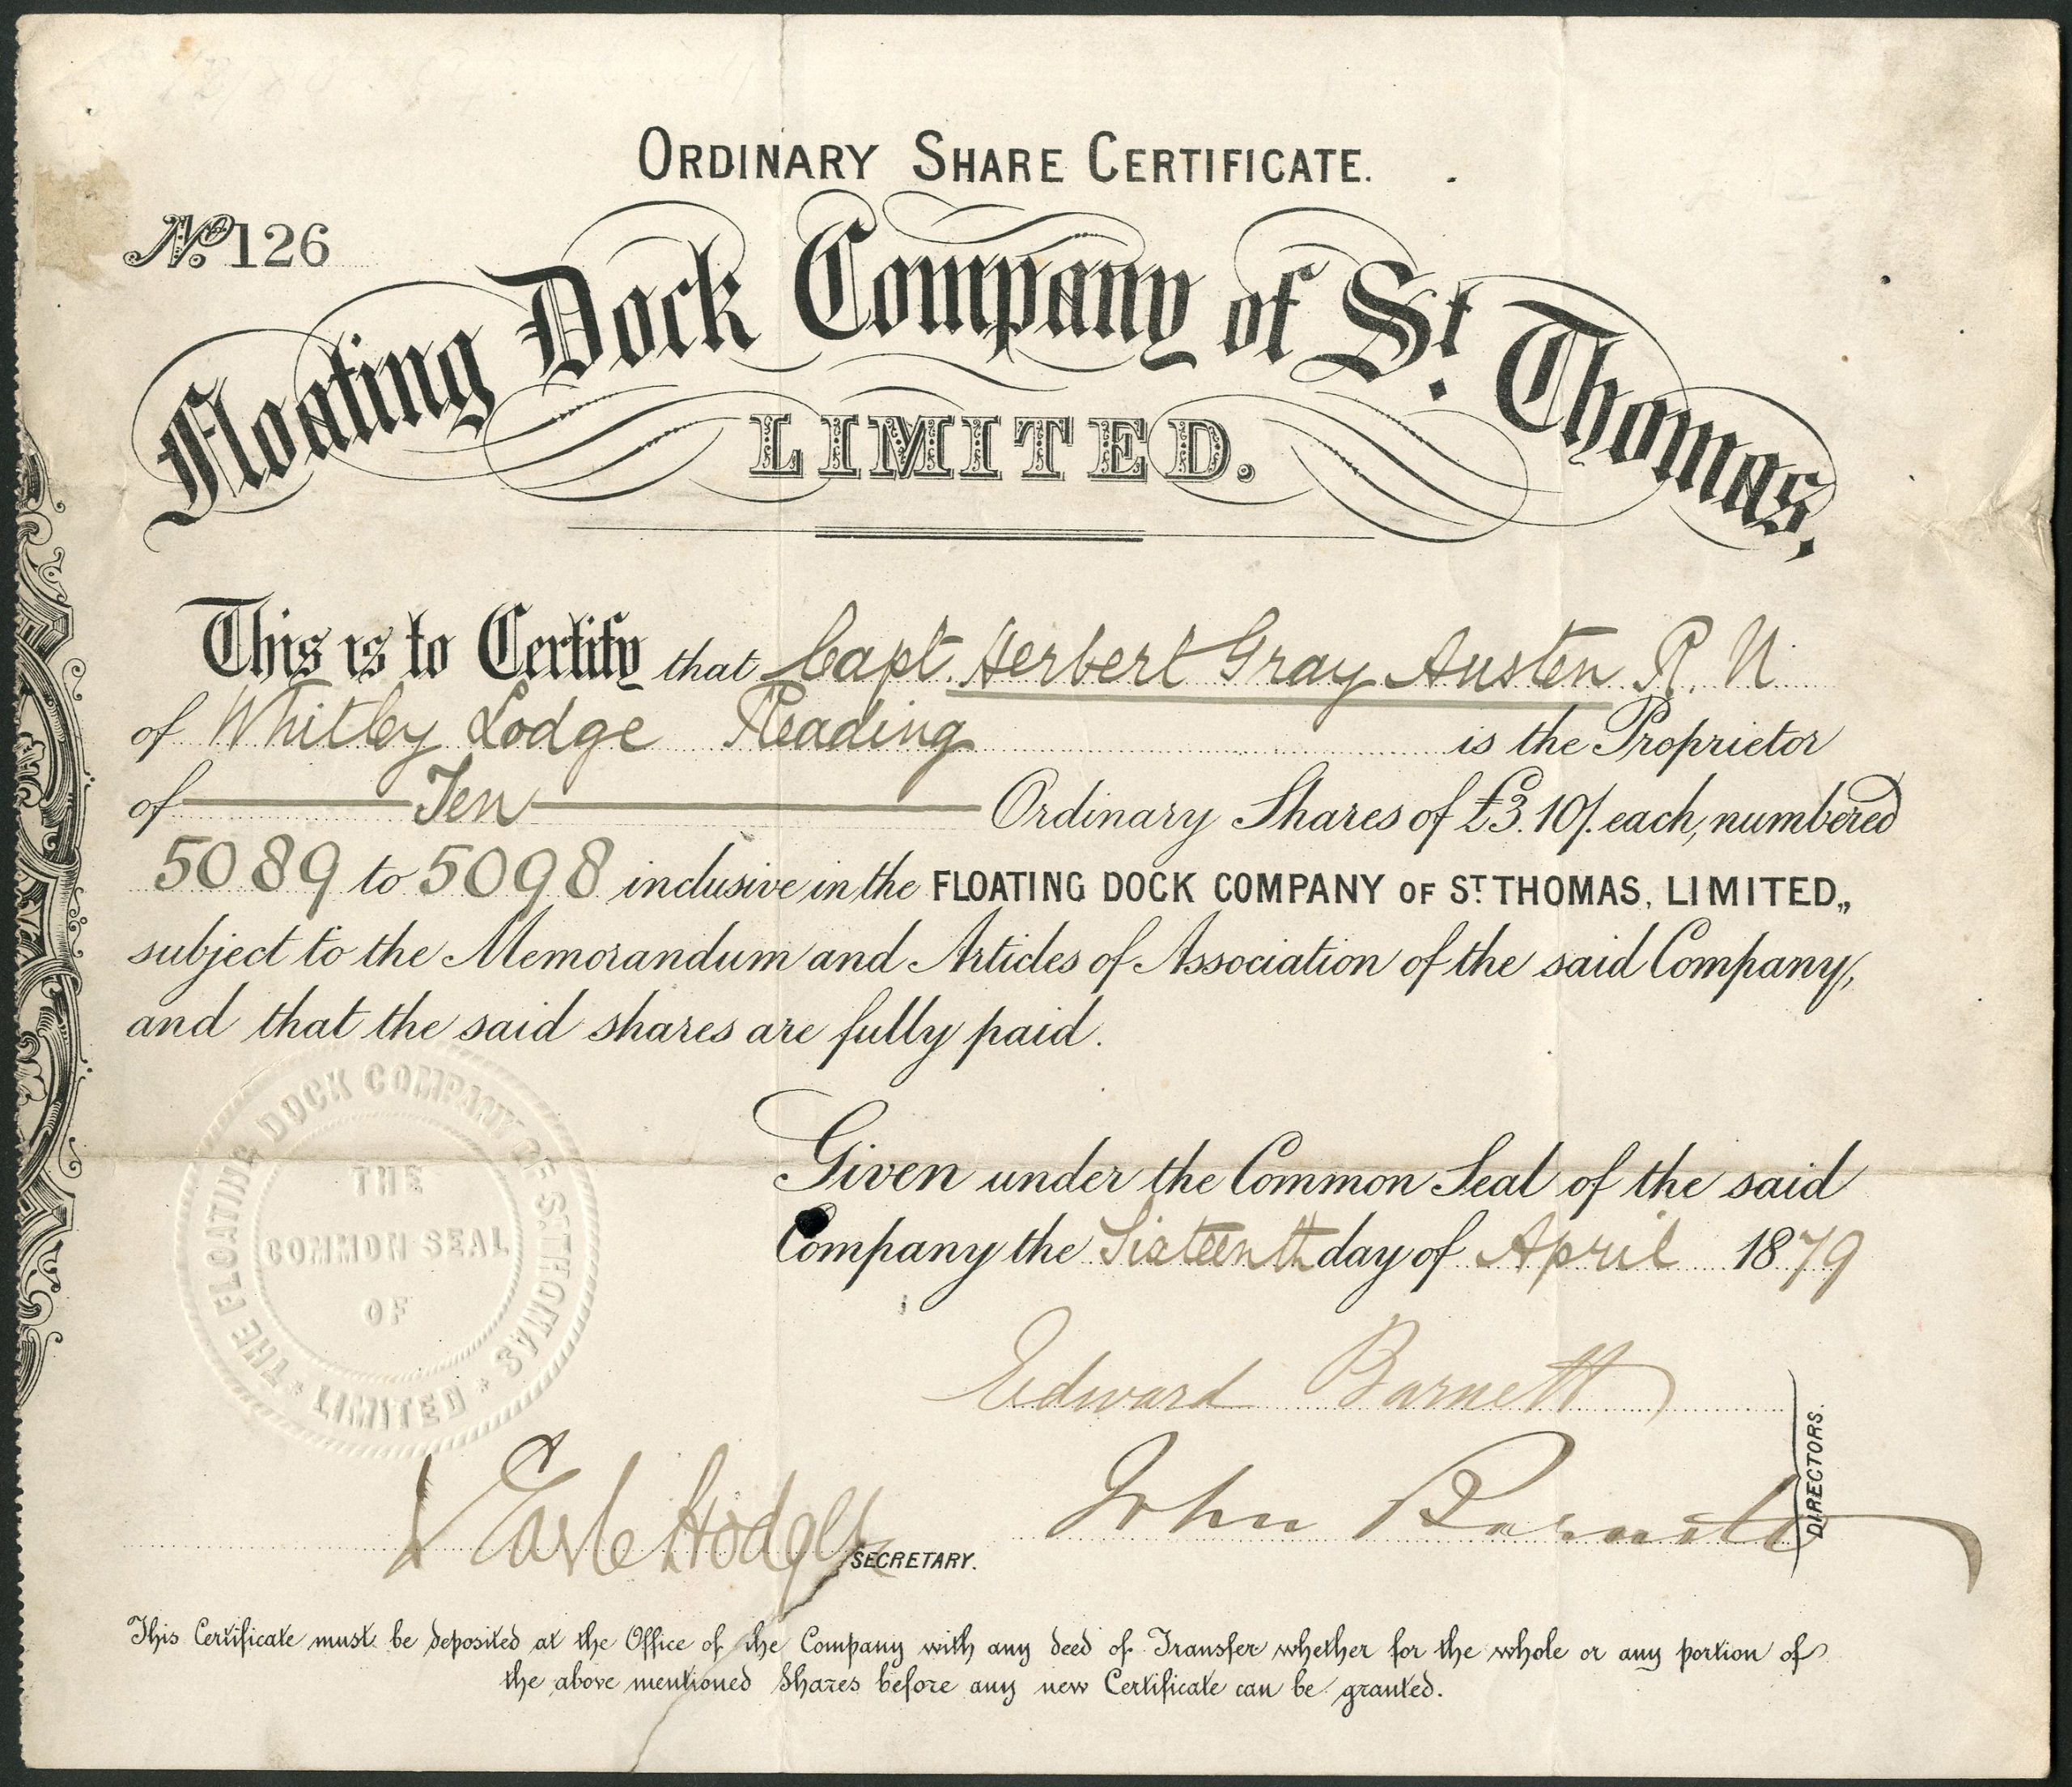 ORDINARY SHARE CERTIFICATE.
No. 126
Floating Dock Company of St. Thomas,
LIMITED.
This is to Certify that Capt. Herbert Gray Austen R. N
of Whitley Lodge Reading is the Proprietor
of Ten Ordinary Shares of £3.10/. each, numbered
5089 to 5098 inclusive in the FLOATING DOCK COMPANY OF ST. THOMAS, LIMITED,,
subject to the Memorandum and Articles of Association of the said Company,
and that the said shares are fully paid.
THE FLOATING DOCK COMPANY OF ST. THOMAS * LIMITED *
THE
COMMON SEAL
OF
Given under the Common Seal of the said
Company the Sixteenth day of April 1879
Edward Barnett
John Barnett
DIRECTORS.
Earle Hodges
SECRETARY.
This Certificate must be deposited at the Office of the Company with any deed of Transfer whether for the whole or any portion of
the above mentioned Shares before any new Certificate can be granted.